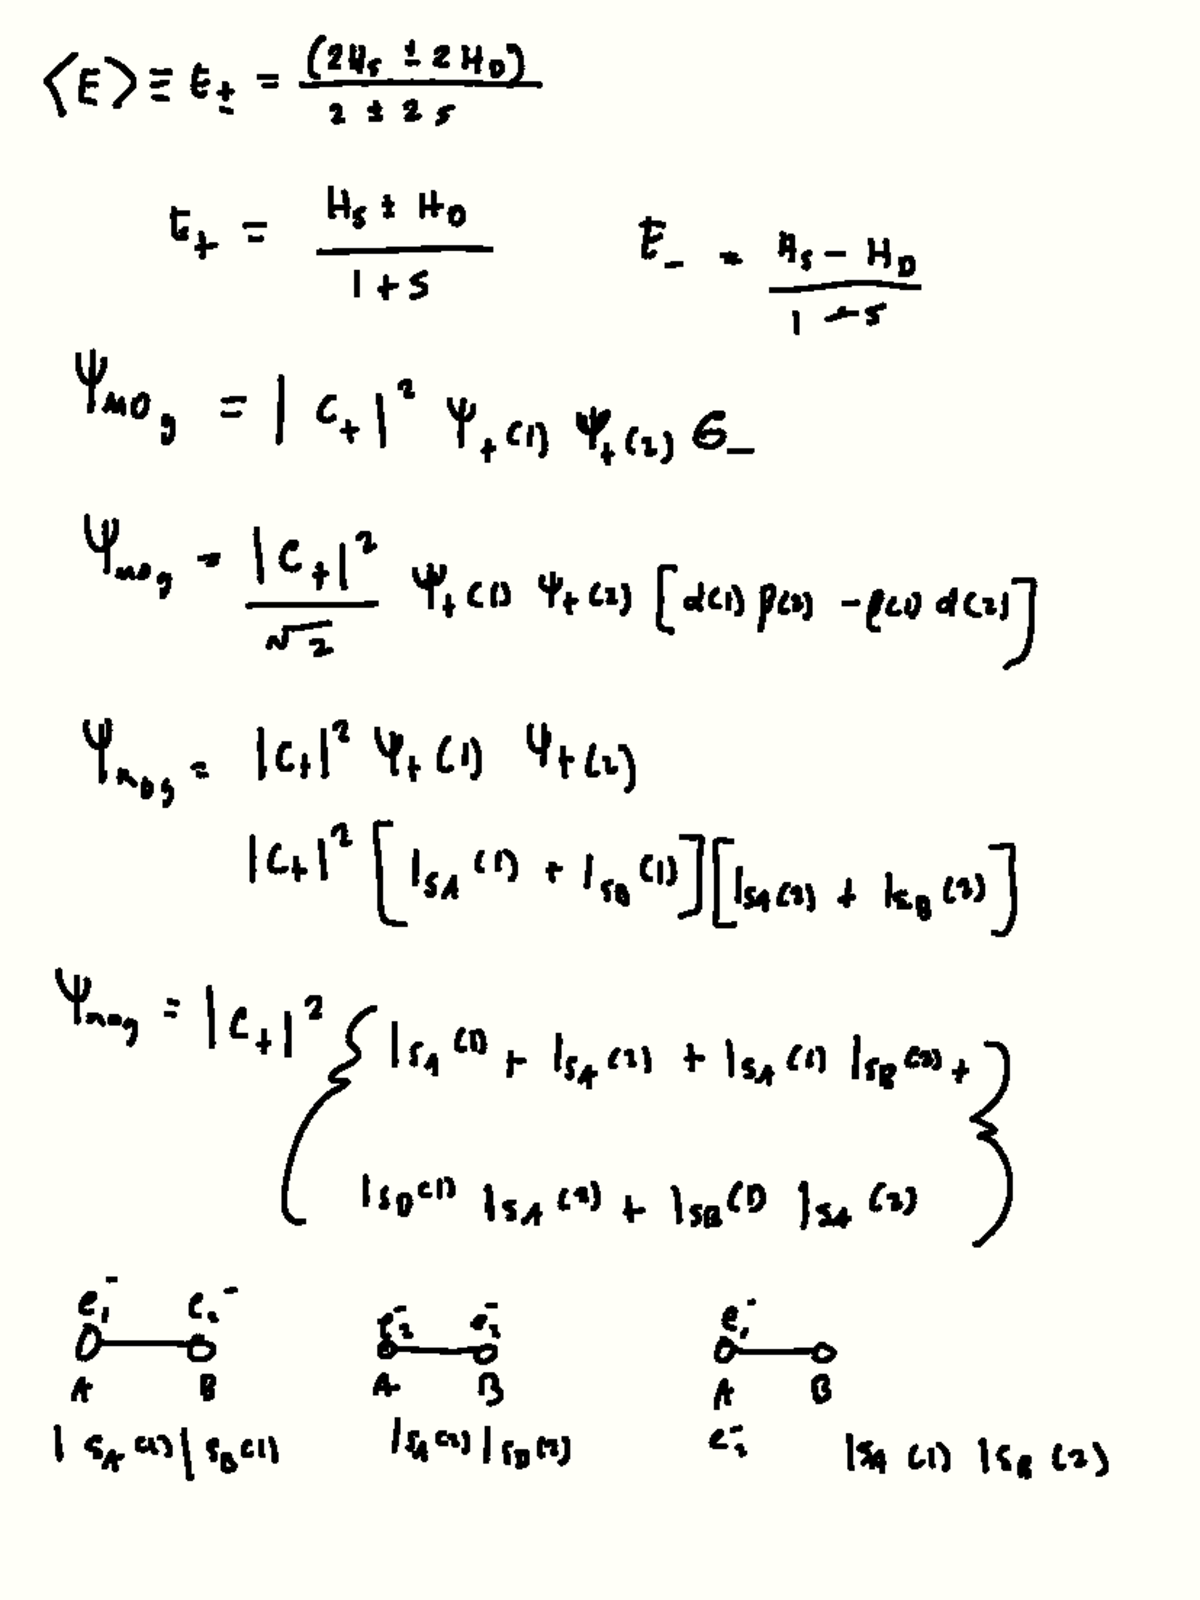 ⟨E⟩ ≡ E± = (2H_S ± 2H_D) / 2 ± 2s
E_+ = H_S ± H_D / 1 + S    E_- = H_S - H_D / 1 - S
Ψ_MO g = |C_+|² Ψ_+(1) Ψ_+(2) σ_-
Ψ_MO g = |C_+|² / √2 Ψ_+(1) Ψ_+(2) [α(1) β(2) - β(1) α(2)]
Ψ_MO g = |C_+|² Ψ_+(1) Ψ_+(2)
|C_+|² [1s_A(1) + 1s_B(1)] [1s_A(2) + 1s_B(2)]
Ψ_MO g = |C_+|² { 1s_A(1) + 1s_A(2) + 1s_A(1) 1s_B(2) +
1s_D(1) 1s_A(2) + 1s_B(1) 1s_A(2) }
e₁⁻ e₂⁻    e₂⁻ e₂⁻    e₁⁻
A B    A B    A B
1s_A(2) 1s_B(1)    1s_A(2) 1s_D(2)    e₂⁻    1s_A(1) 1s_B(2)